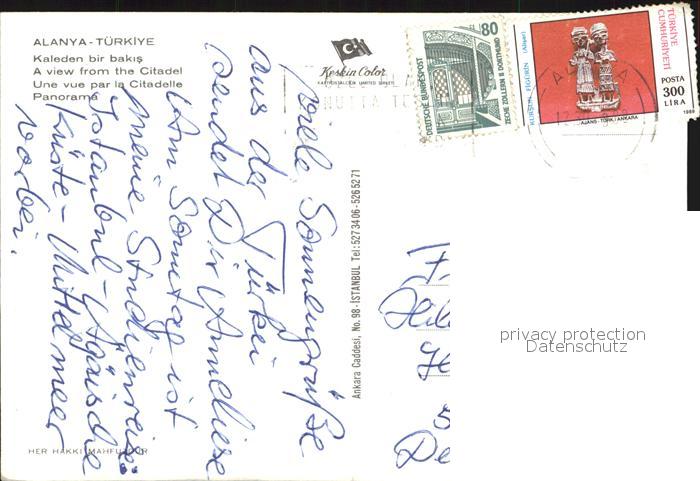 ALANYA - TÜRKİYE
Kaleden bir bakış
A view from the Citadel
Une vue par la Citadelle
Panorama
Keskin Color
KARTPOSTALCILIK LIMITED ŞİRKETİ
DEUTSCHE BUNDESPOST
80
ZECHE ZOLLERN II DORTMUND
KURŞUN FİGÜRİN (Alişar)
TÜRKİYE CUMHURİYETİ
POSTA
300
LİRA
1989
AJANS-TÜRK/ANKARA
Viele Sonnengrüße
aus der Türkei
sendet Dir Anneliese
Am Sonntag ist
meine Studienreise:
Istanbul-Ägäische
Küste-Mittelmeer
vorbei.
Ankara Caddesi, No. 98-İSTANBUL Tel: 5273406-5265271
HER HAKKI MAHFUZDUR
privacy protection
Datenschutz